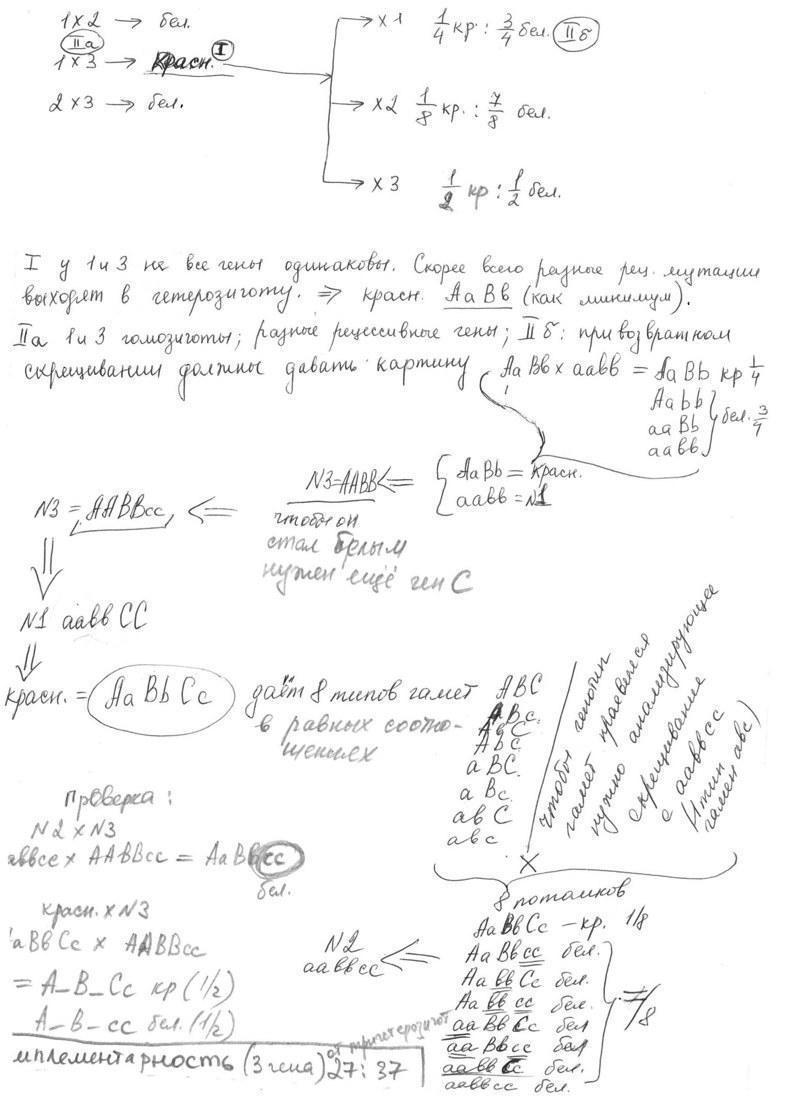 1x2 → бел.
IIа
1x3 → Красн. I
2x3 → бел.
→ x1 1/4 кр : 3/4 бел. IIб
→ x2 1/8 кр. : 7/8 бел.
→ x3 1/2 кр : 1/2 бел.
I у 1 и 3 не все гены одинаковы. Скорее всего разные рец. мутации
выходят в гетерозиготу. ⇒ красн. AaBb (как минимум).
IIа 1 и 3 гомозиготы; разные рецессивные гены; IIб: при возвратном
скрещивании должны давать картину AaBb x aabb = AaBb кр 1/4
Aabb
aaBb бел. 3/4
aabb
AaBb = красн.
aabb = N1
N3=AABB ⇐
чтобы он
стал белым
нужен ещё ген C
N3 = AABBcc, ⇐
⇓
N1 aabb CC
⇓
красн. = AaBbCc даёт 8 типов гамет
в равных соотно-
шениях
ABC
ABc
AbC
Abc
aBC
aBc
abC
abc
чтобы генотип
гамет
нужно анализирующее
скрещивание
с aabbcc
(1 тип
гамет abc)
x
8 потомков
AaBbCc – кр. 1/8
AaBbcc бел.
AabbCc бел.
Aabbcc бел.
aaBbCc бел
aaBbcc бел
aabbCc бел.
aabbcc бел.
7/8
N2 ⇐
aabbcc
Проверка:
N2 x N3
aabbcc x AABBcc = AaBbcc
бел.
красн. x N3
AaBbCc x AABBcc
= A_B_Cc кр (1/2)
A_B_cc бел. (1/2)
мплементарность (3 гена) 27:37
от тригетерозигот